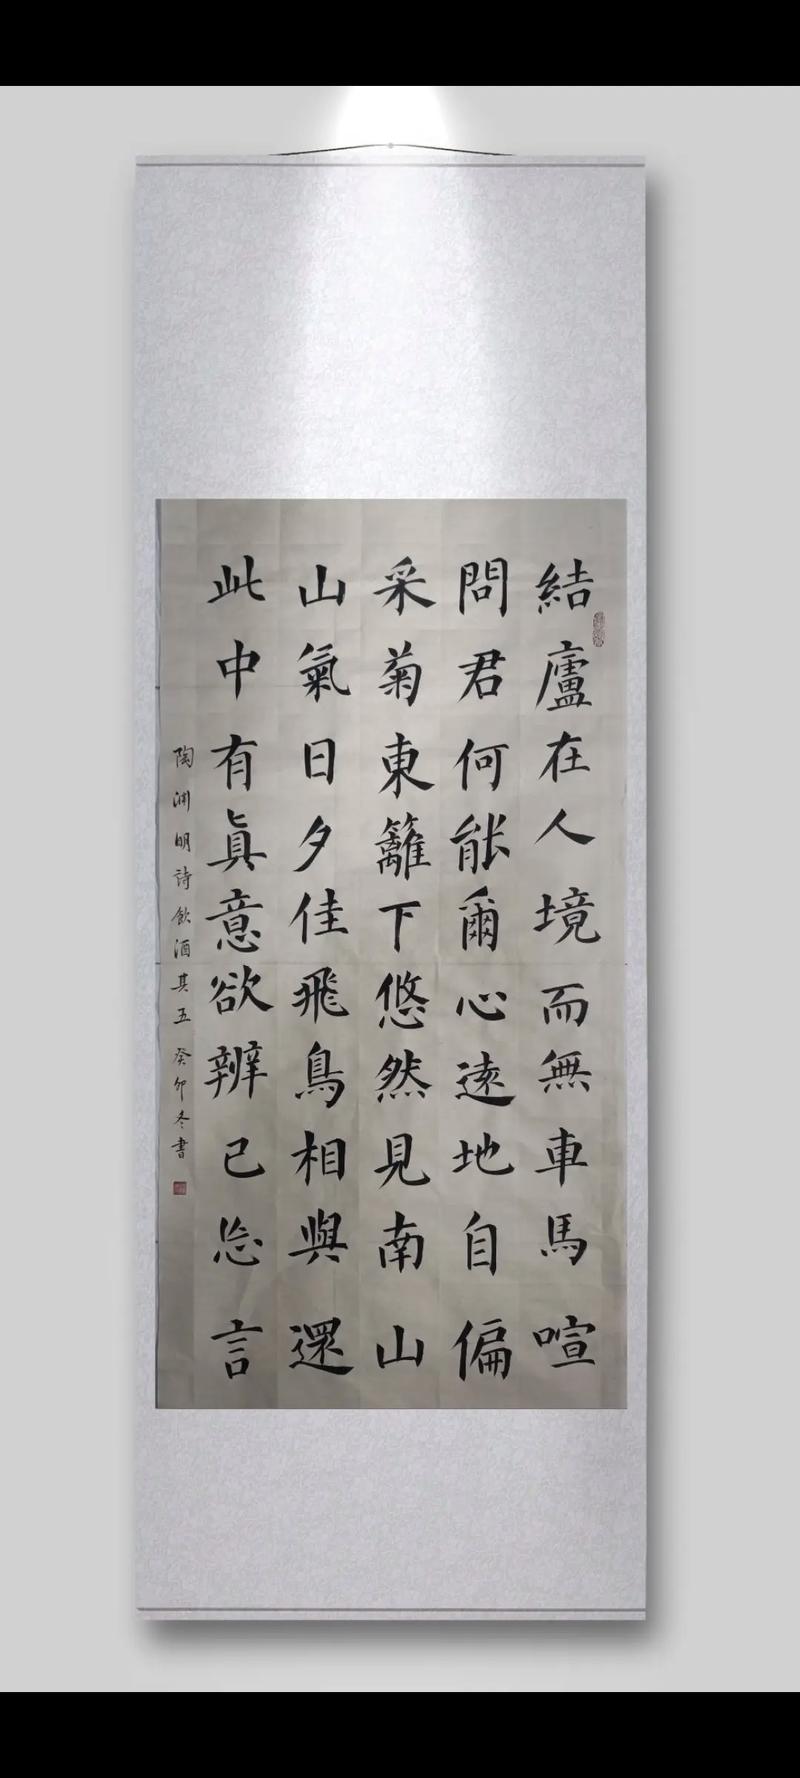 結廬在人境而無車馬喧
問君何能爾心遠地自偏
采菊東籬下悠然見南山
山氣日夕佳飛鳥相與還
此中有眞意欲辨已忘言
陶渊明詩飲酒其五 癸卯冬書